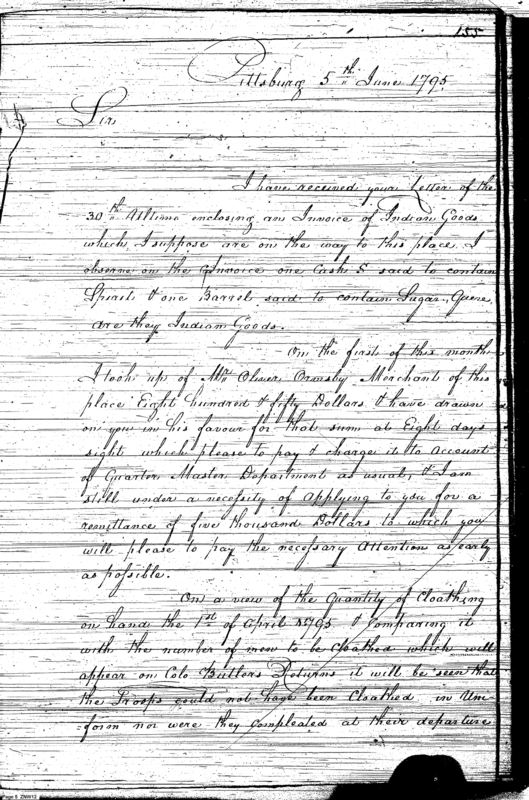 155
Pittsburg 5th June 1795
Sir
I have received your Letter of the
30th Ultimo enclosing an Invoice of Indian Goods
which I suppose are on the way to this place. I
observe on the Invoice one Cask S said to contain
Spirit & one Barrel said to contain Sugar, Quere
are they Indian Goods.
On the first of this month
I took up of Mr Oliver Ormsby Merchant of this
place Eight hundred & fifty Dollars & have drawn
on you in his favour for that sum at Eight days
sight which please to pay & charge it to account
of Quarter Master Department as usual, & I am
still under a necessity of applying to you for a
remittance of five thousand Dollars to which you
will please to pay the necessary attention as early
as possible.
On a view of the Quantity of Cloathing
on hand the 1st of April 1795 & Comparing it
with the number of men to be Cloathed which will
appear on Colo Butlers Returns it will be seen that
the Troops could not have been Cloathed in Uni
=form nor were they Compleated at their departure